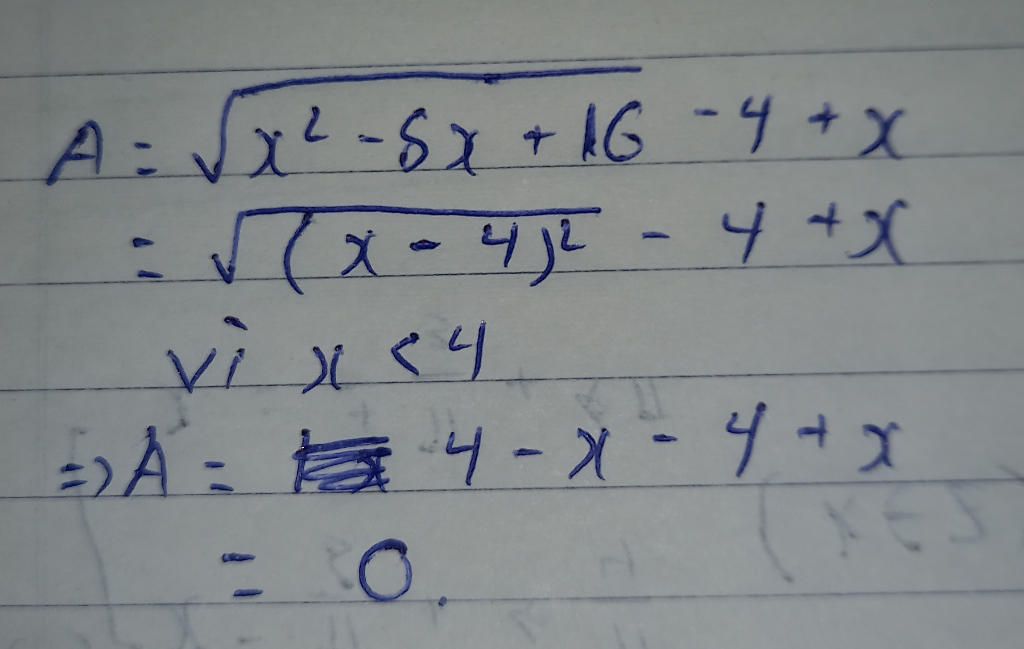 A = √(x² - 8x + 16) - 4 + x
= √((x - 4)²) - 4 + x
vì x < 4
=> A = 4 - x - 4 + x
= 0.